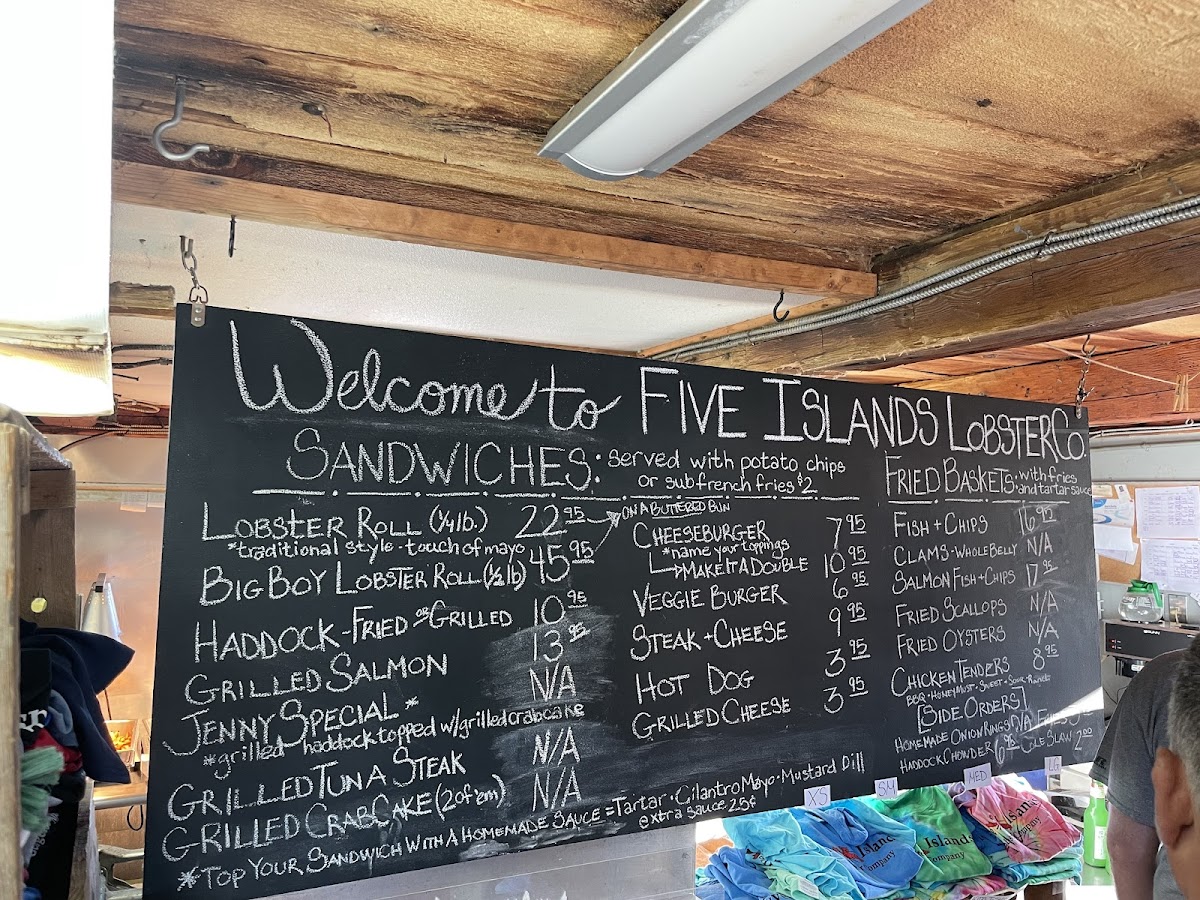 Welcome to FIVE ISLANDS LOBSTER CO.
SANDWICHES: served with potato chips
or sub french fries $2
LOBSTER ROLL (1/4 lb.) 22.95
*traditional style - touch of mayo
ON A BUTTERED BUN
BIG BOY LOBSTER ROLL (1/2 lb) 45.95
HADDOCK - FRIED OR GRILLED 10.95
GRILLED SALMON 13.95
JENNY SPECIAL* N/A
*grilled haddock topped w/grilled crabcake
GRILLED TUNA STEAK N/A
GRILLED CRAB CAKE (2 of em) N/A
*TOP YOUR SANDWICH WITH A HOMEMADE SAUCE = Tartar · Cilantro Mayo · Mustard Dill
extra sauce 25¢
CHEESEBURGER 7.95
*name your toppings
MAKE IT A DOUBLE 10.95
VEGGIE BURGER 6.95
STEAK + CHEESE 9.95
HOT DOG 3.95
GRILLED CHEESE 3.95
FRIED BASKETS: with fries
and tartar sauce
FISH + CHIPS 16.95
CLAMS - WHOLE BELLY N/A
SALMON FISH + CHIPS 17.95
FRIED SCALLOPS N/A
FRIED OYSTERS N/A
CHICKEN TENDERS 8.95
BBQ · HONEY MUST · SWEET + SOUR · RANCH
[SIDE ORDERS]
HOMEMADE ONION RINGS N/A FRIES
HADDOCK CHOWDER 6.95 COLE SLAW 2.00
XS
SM
MED
LG
Island
Company
Island
Company
Island
Company